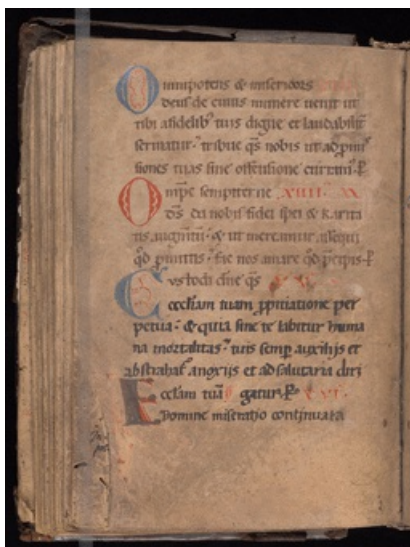 Omnipotens & misericors
deus de cuius munere uenit ut
tibi afidelib' tuis digne et laudabilit
seruiatur. tribue qs nobis ut ad
siones tuas sine offensione
Omps sempiterne XIIII.
ds da nobis fidei spei & karita
tis augmtū. & ut mereamur assequi
qd fac nos amare qd precipis.
Custodi dne qs
ecclam tuam ppitiatione per
petua. & quia sine te labitur huma
na mortalitas. tuis semp auxiliis et
abstrahat' anoxiis et ad salutaria diri
Ecclam tuā gatur. XVI.
domine miseratio continuata